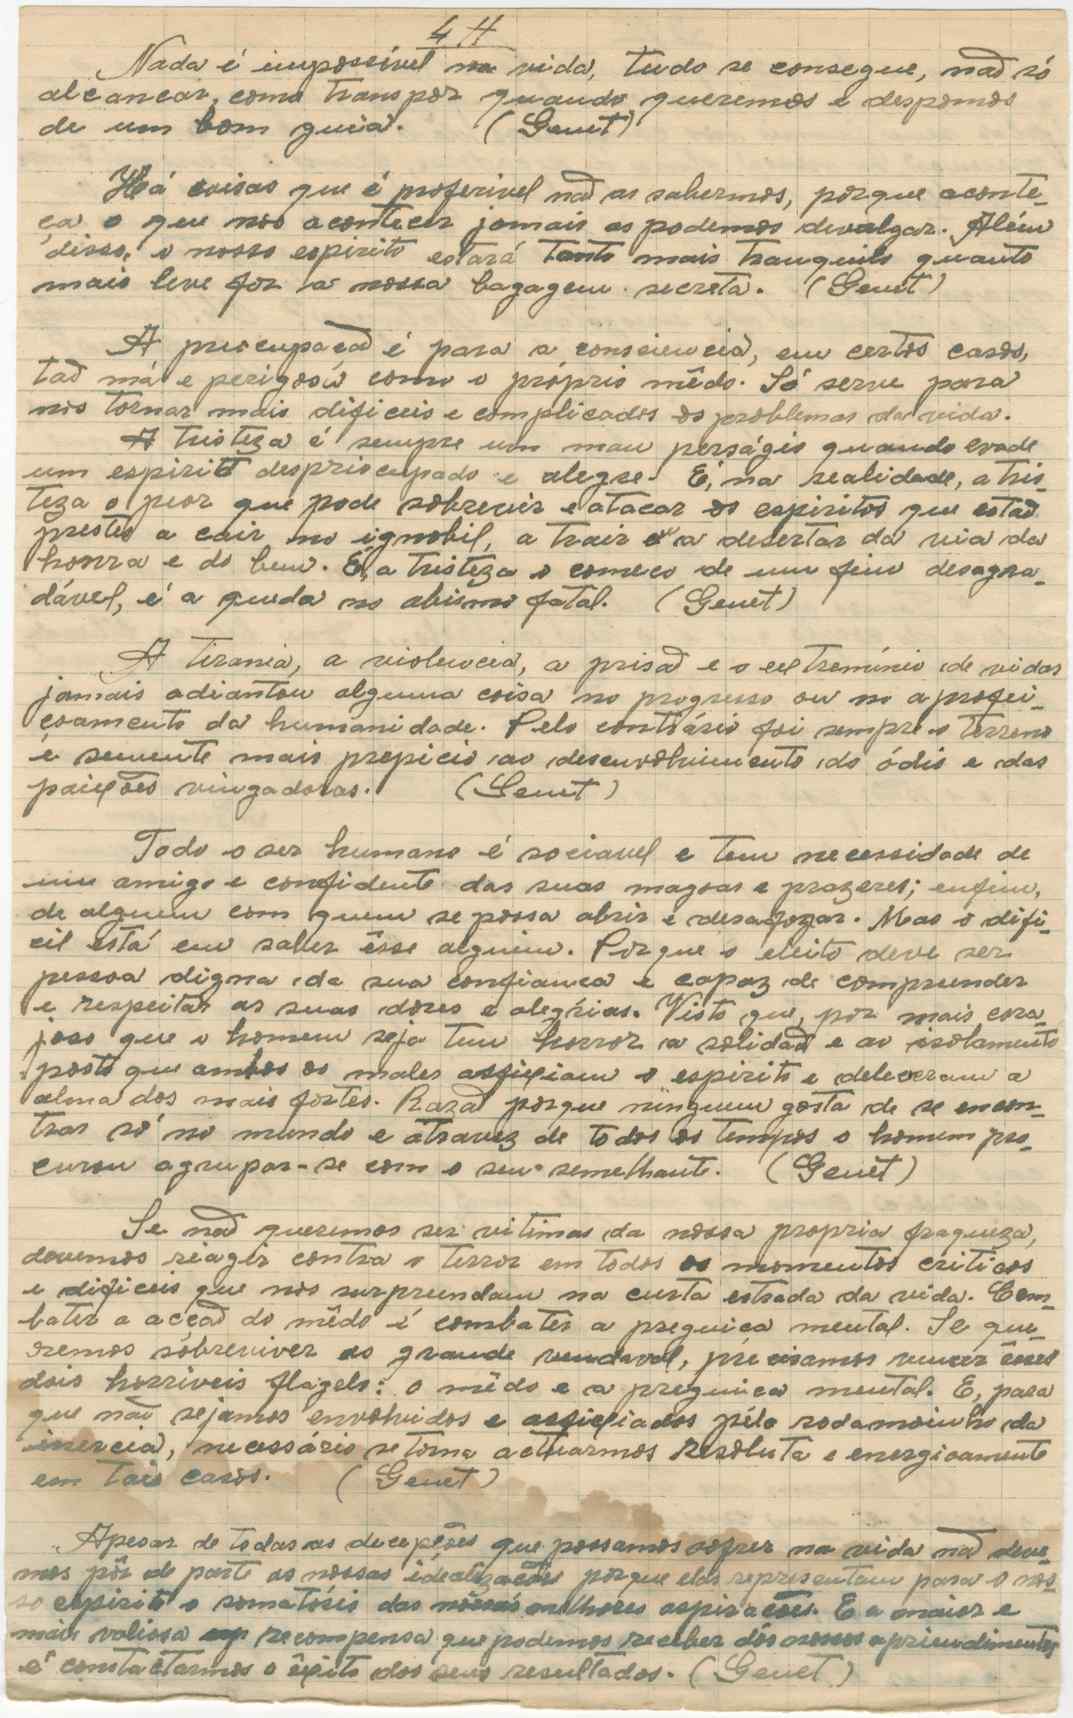 4 H
Nada é impossível na vida, tudo se consegue, não só
alcancar, como transpor quando queremos e despomos
de um bom guia. (Genet)
Há coisas que é proferivel não as sabermos, porque aconte-
ça o que nos acontecer jamais as podemos devulgar. Além
disso, o nosso espirito estará tanto mais tranquilo quanto
mais leve for a nossa bagagem secreta. (Genet)
A preocupação é para a consciencia, em certos casos,
tão má e perigosa como o próprio mêdo. Só serve para
nos tornar mais dificeis e complicados os problemas da vida.
A tristeza é sempre um mau perságio quando evade
um espirito despriocupado e alegre. E, na realidade, a tris-
teza o peor que pode sobrevir e atacar os espiritos que estão
prestes a cair no ignobil, a trair e a desertar da via da
honra e do bem. É a tristeza o comeco de um fim desagra-
dável, é a queda no abismo fatal. (Genet)
A tirania, a violencia, a prisão e o extreminio de vidas
jamais adiantou alguma coisa no progresso ou no aprofei-
çoamento da humanidade. Pelo contrário foi sempre o terreno
e semente mais prepicio ao desenvolvimento do ódio e das
paixões vingadoras. (Genet)
Todo o ser humano é sociavel e tem necessidade de
um amigo e confidente das suas magoas e prazeres; enfim,
de alguem com quem se possa abrir e desafogar. Mas o difi-
cil está em saber êsse alguém. Porque o eleito deve ser
pessoa digna da sua confianca e capaz de compreender
e respeitar as suas dores e alegrias. Visto que, por mais cora-
joso que o homem seja tem horror a solidão e ao isolamento
posto que ambos os males asfixiam o espirito e deleceram a
alma dos mais fortes. Razão porque ninguem gosta de se encon-
trar só no mundo e atravez de todos os tempos o homem pro-
curou agrupar-se com o seu semelhante. (Genet)
Se não queremos ser vitimas da nossa propria fraqueza,
devemos riagir contra o terror em todos os momentos criticos
e dificeis que nos surpreendam na curta estrada da vida. Com-
bater a acção do mêdo é combater a preguica mental. Se que-
remos sobreviver ao grande vendaval, precisamos vencer êsses
dois horriveis flagelo: o mêdo e a preguica mental. E, para
que não sejamos envolvidos e asfixiados pélo rodamoinho da
inercia, necessário se torna actuarmos resoluta e energicamente
em tais casos. (Genet)
Apesar de todas as decepções que possamos sofrer na vida não deve-
mos pôr de parte as nossas idealizações porque elas representam para o nos-
so espirito o somatório das nossas melhores aspirações. E a maior e
mais valiosa recompensa que podemos receber dos nossos apriendimentos
é constactarmos o êxito dos seus resultados. (Genet)